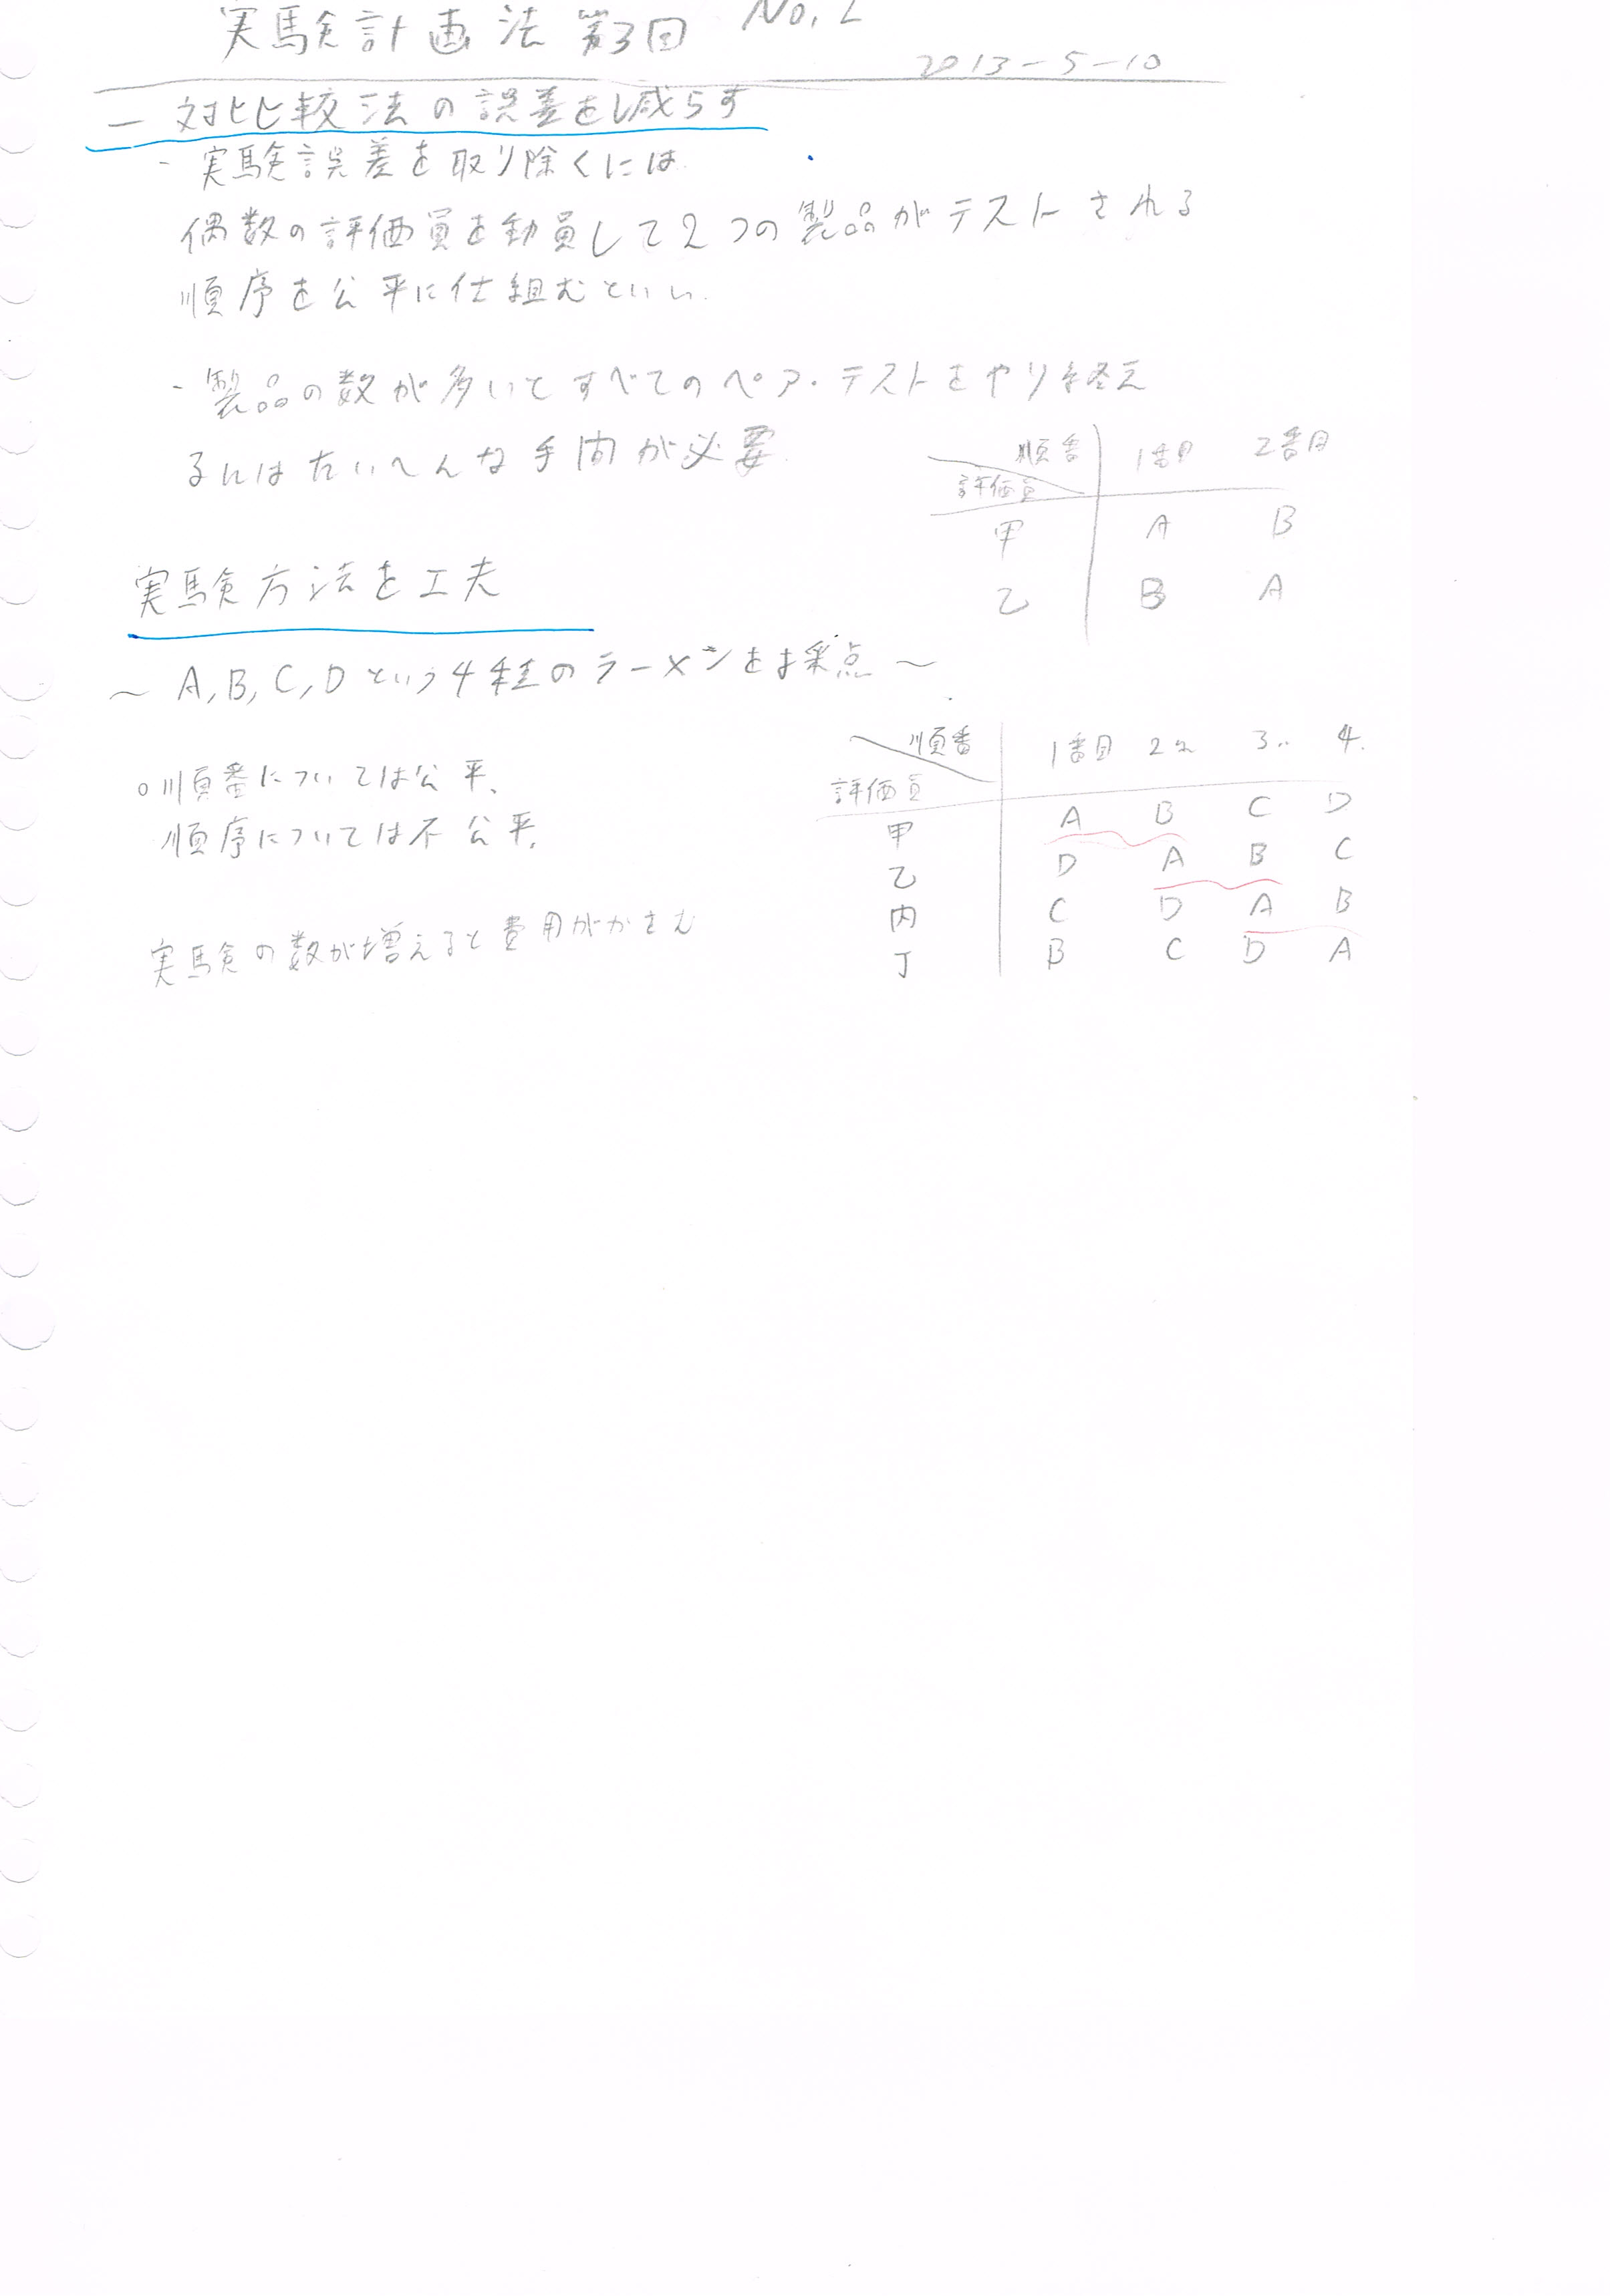 実験計画法 第3回 No.2
2013-5-10
一対比較法の誤差を減らす
・実験誤差を取り除くには
偶数の評価員を動員して2つの製品がテストされる
順序を公平に仕組むといい.
・製品の数が多いとすべてのペア・テストをやり終え
るにはたいへんな手間が必要
順番 1番目 2番目
評価員
甲 A B
乙 B A
実験方法を工夫
～A,B,C,Dという4種のラーメンを採点～
順番 1番目 2〃 3〃 4.
評価員
甲 A B C D
乙 D A B C
丙 C D A B
丁 B C D A
○順番については公平、
順序については不公平.
実験の数が増えると費用がかさむ